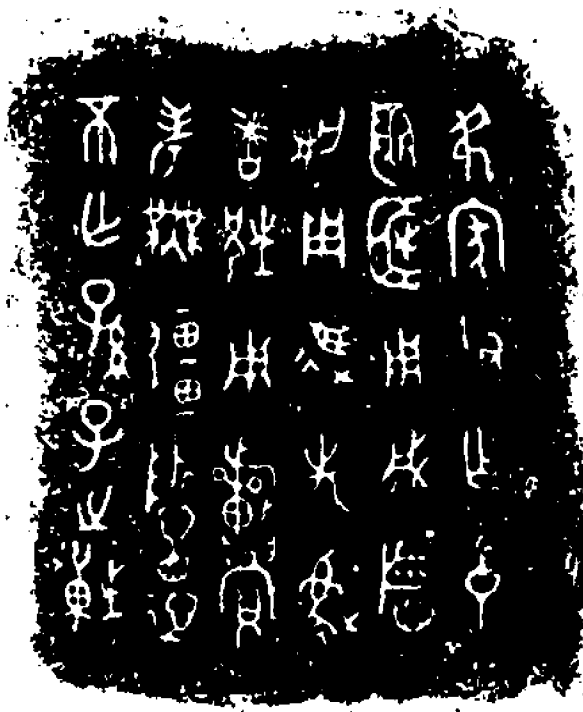 弔家父乍中
姬匡用成稻
粱用速先後
者兄用旂眉
考無彊哲德
不亡孫子之貺